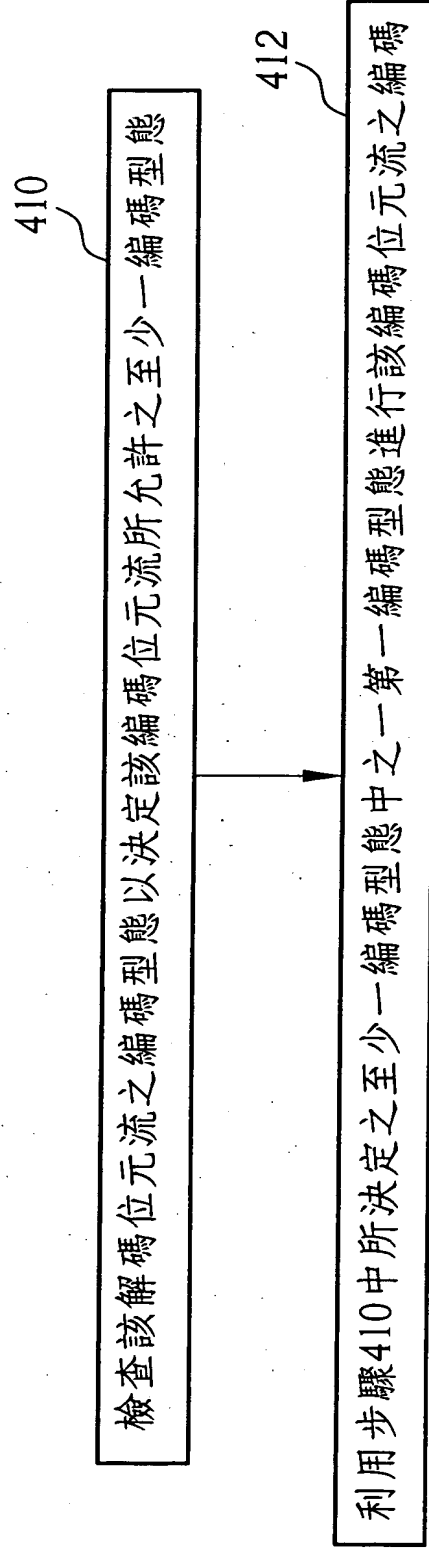 410
檢查該解碼位元流之編碼型態以決定該編碼位元流所允許之至少一編碼型態
412
利用步驟410中所決定之至少一編碼型態中之一第一編碼型態進行該編碼位元流之編碼